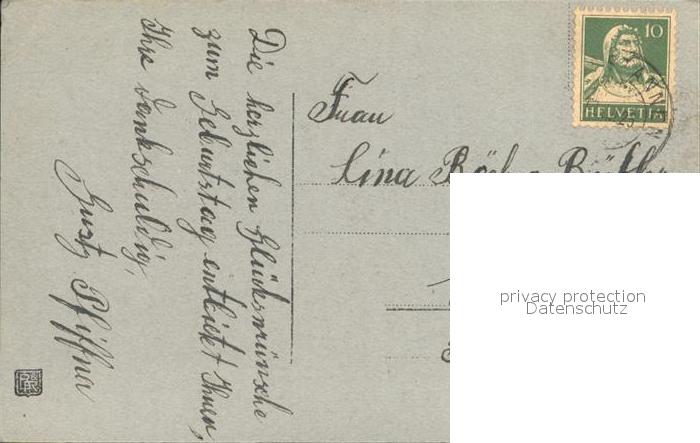 Die herzlichen Glückwünsche
zum Geburtstag entbietet Ihnen,
Ihre dankschuldig,
Gust. Pfiffner
Frau
Lina
10
HELVETIA
privacy protection
Datenschutz